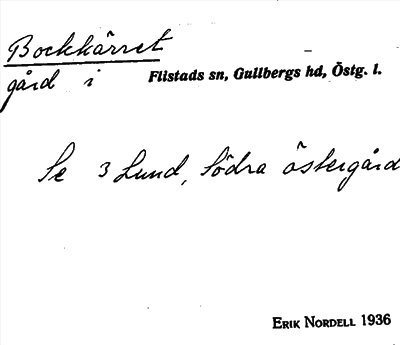 Bockkärret
gård i Flistads sn, Gullbergs hd, Östg. l.
Se 3 Lund, Södra östergård
ERIK NORDELL 1936